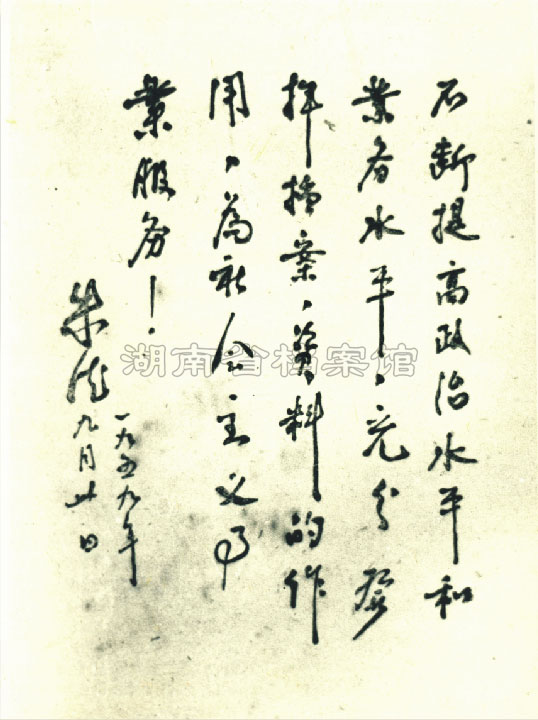 不断提高政治水平和
業务水平，充分發
揮档案，資料的作
用，為社会主义事
業服务！
朱德
一九五九年
九月廿日
湖南省档案馆